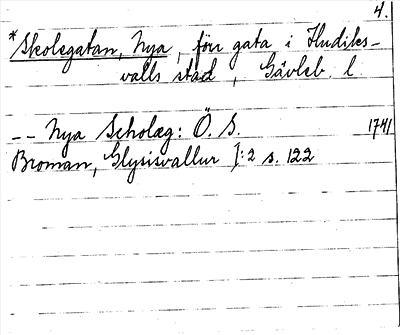 4.
*Skolegatan, Nya, förr gata i Hudiks-
valls stad, Gävleb. l.
-- Nya Scholæg: Ö. S. 1741
Broman, Glysisvallur I:2 s. 122